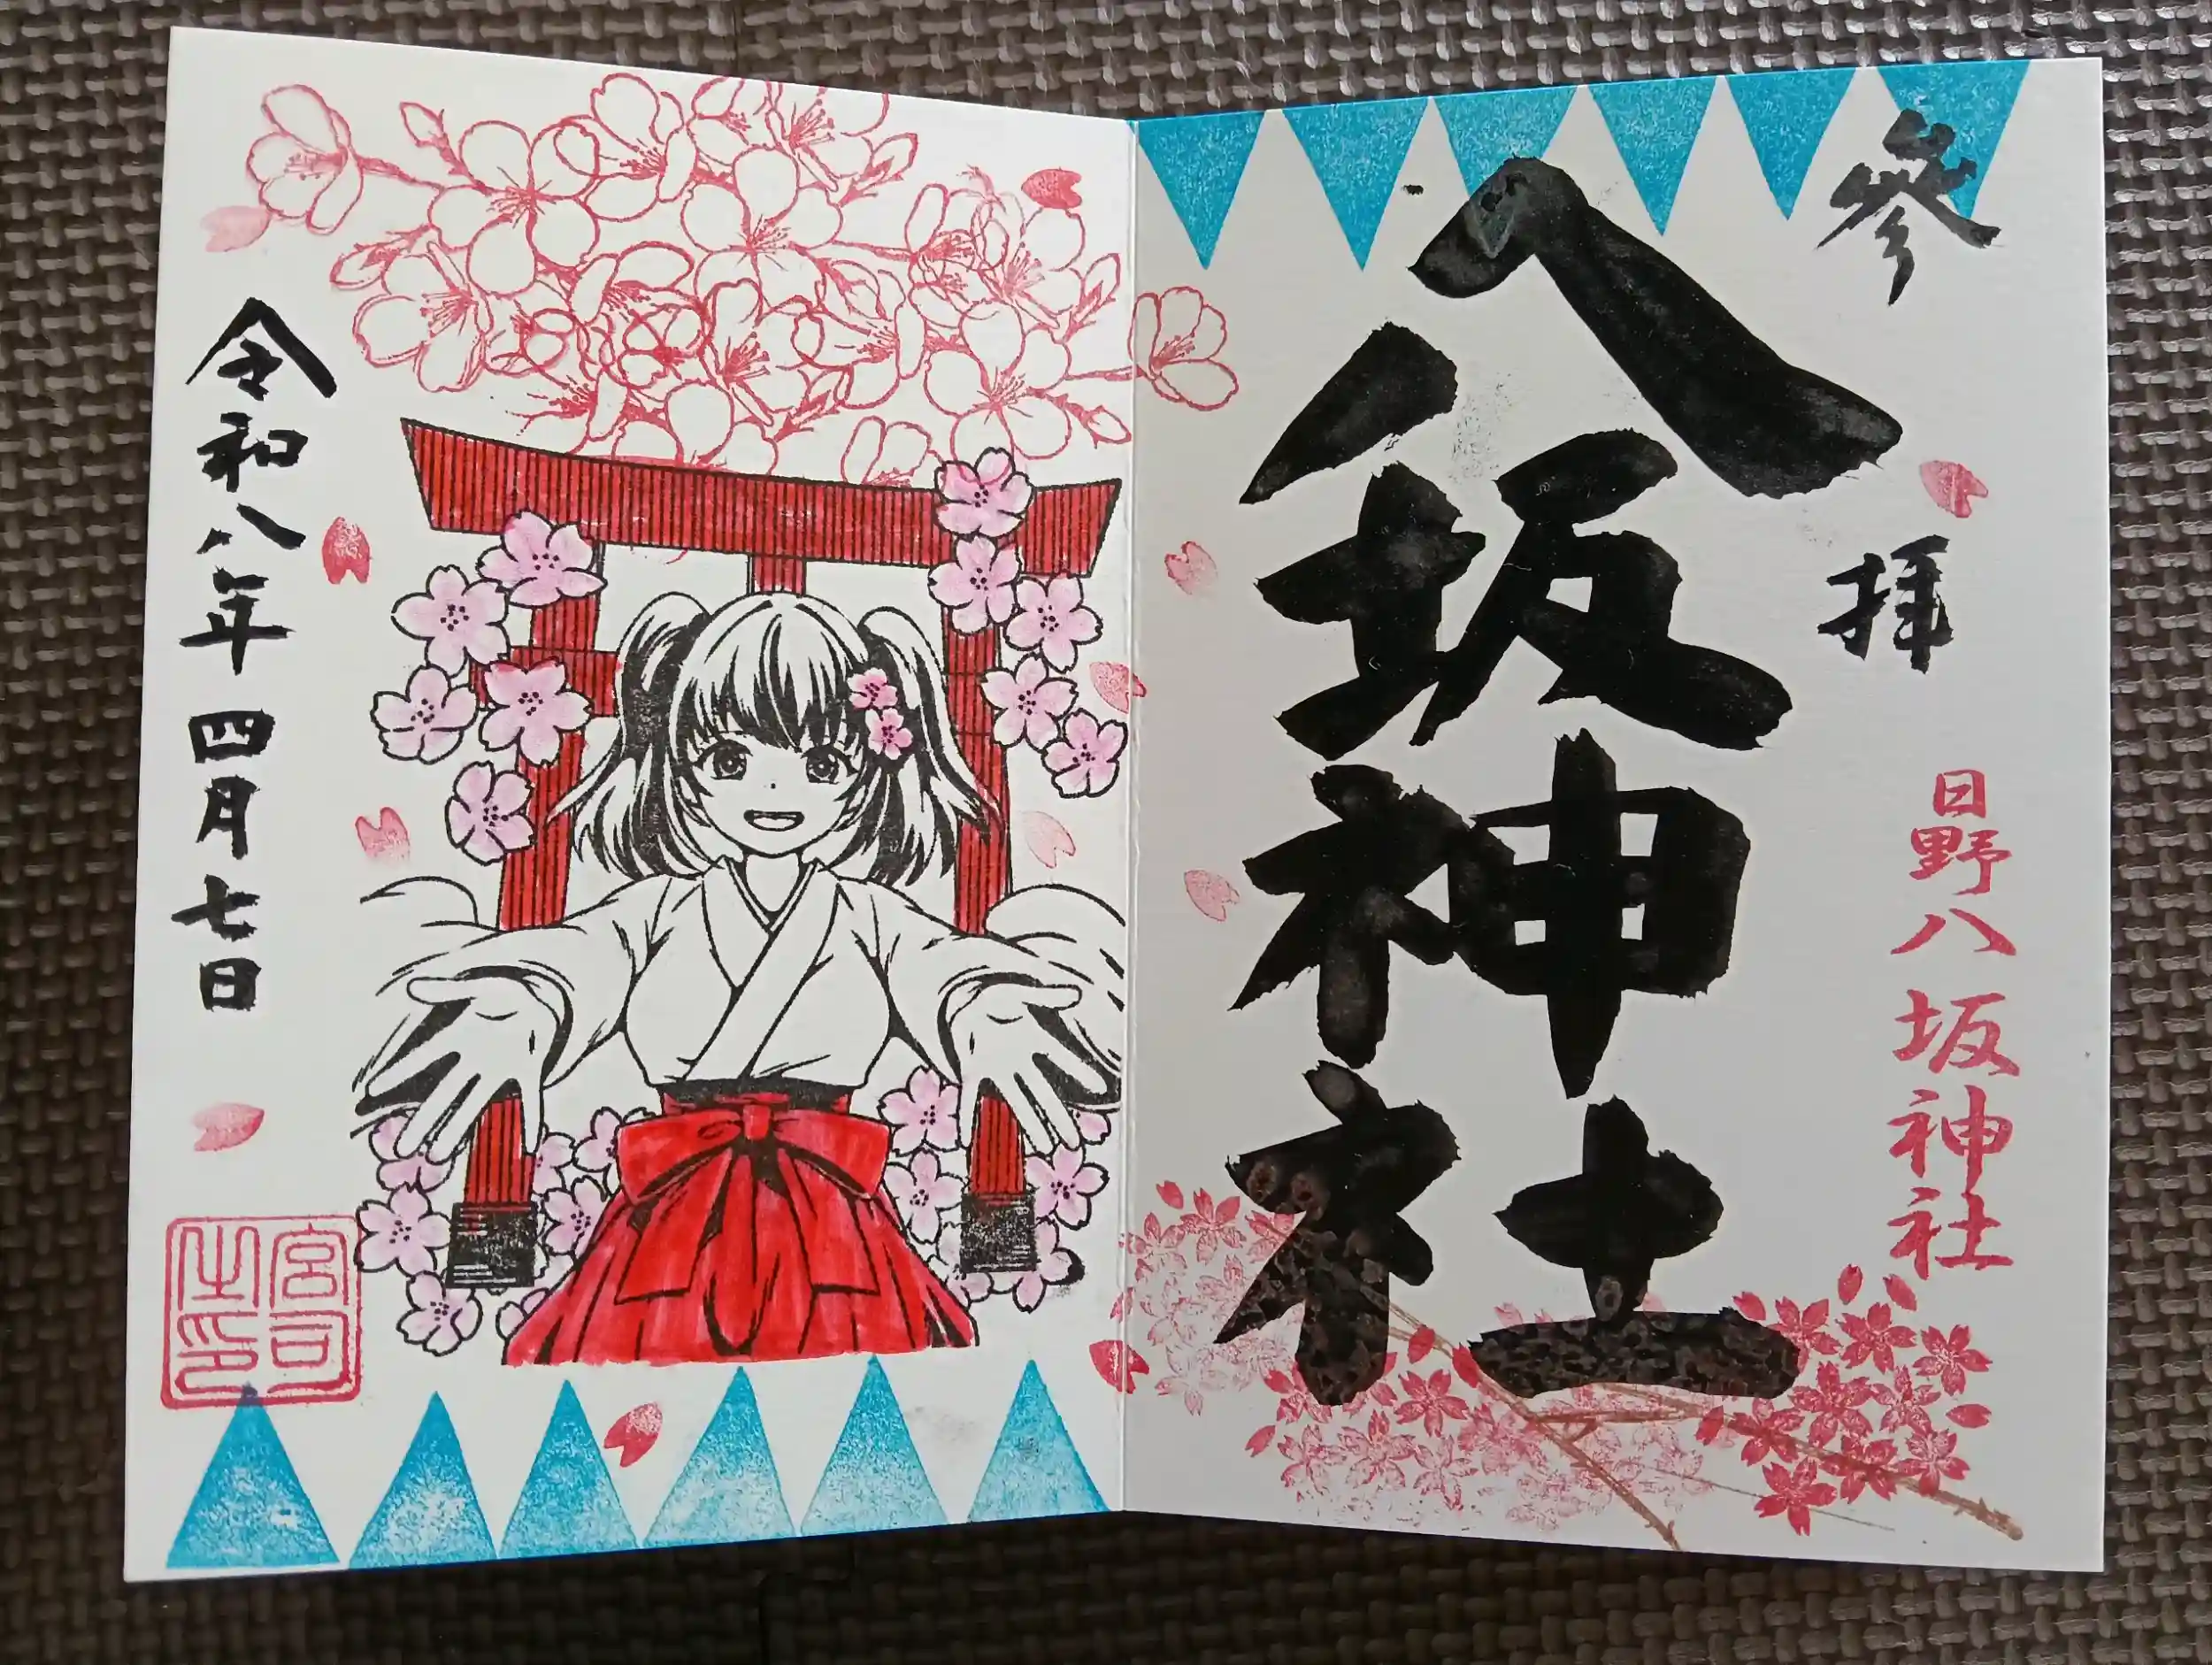 參拝
八坂神社
日野八坂神社
令和八年四月七日
宮司之印